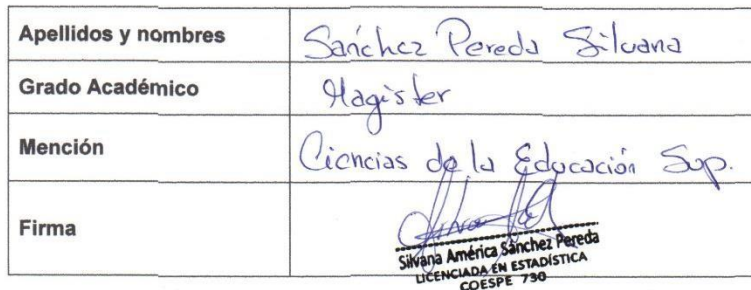 Apellidos y nombres Sánchez Pereda Silvana
Grado Académico Magister
Mención Ciencias de la Educación Sup.
Firma
Silvana América Sánchez Pereda
LICENCIADA EN ESTADÍSTICA
COESPE 730